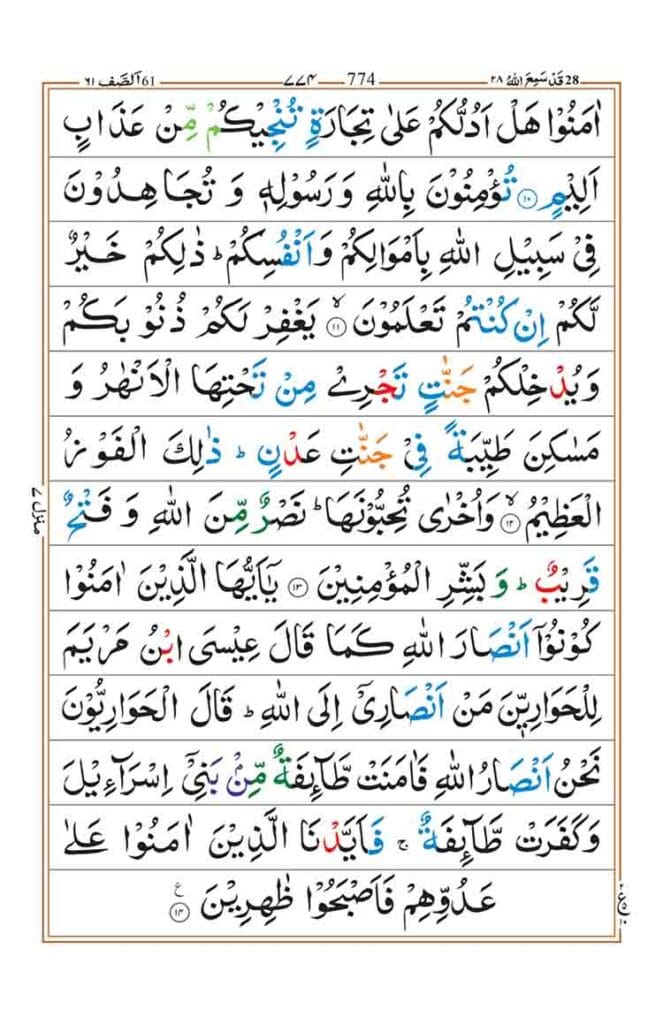 28 قَدْ سَمِعَ اللهُ ٢٨ 774 ٧٧٤ 61 اَلصَّف ٦١
اٰمَنُوْا هَلْ اَدُلُّكُمْ عَلٰى تِجَارَةٍ تُنْجِيْكُمْ مِّنْ عَذَابٍ
اَلِيْمٍ ۝١٠ تُؤْمِنُوْنَ بِاللّٰهِ وَرَسُوْلِهٖ وَ تُجَاهِدُوْنَ
فِيْ سَبِيْلِ اللّٰهِ بِاَمْوَالِكُمْ وَاَنْفُسِكُمْ ؕ ذٰلِكُمْ خَيْرٌ
لَّكُمْ اِنْ كُنْتُمْ تَعْلَمُوْنَ ۙ۝١١ يَغْفِرْ لَكُمْ ذُنُوْبَكُمْ
وَيُدْخِلْكُمْ جَنّٰتٍ تَجْرِيْ مِنْ تَحْتِهَا الْاَنْهٰرُ وَ
مَسٰكِنَ طَيِّبَةً فِيْ جَنّٰتِ عَدْنٍ ؕ ذٰلِكَ الْفَوْزُ
الْعَظِيْمُ ۙ۝١٢ وَاُخْرٰى تُحِبُّوْنَهَا ؕ نَصْرٌ مِّنَ اللّٰهِ وَ فَتْحٌ
قَرِيْبٌ ؕ وَ بَشِّرِ الْمُؤْمِنِيْنَ ۝١٣ يٰۤاَيُّهَا الَّذِيْنَ اٰمَنُوْا
كُوْنُوْۤا اَنْصَارَ اللّٰهِ كَمَا قَالَ عِيْسَى ابْنُ مَرْيَمَ
لِلْحَوَارِيّٖنَ مَنْ اَنْصَارِيْۤ اِلَى اللّٰهِ ؕ قَالَ الْحَوَارِيُّوْنَ
نَحْنُ اَنْصَارُ اللّٰهِ فَاٰمَنَتْ طَّآئِفَةٌ مِّنْۢ بَنِيْۤ اِسْرَآءِيْلَ
وَكَفَرَتْ طَّآئِفَةٌ ۚ فَاَيَّدْنَا الَّذِيْنَ اٰمَنُوْا عَلٰى
عَدُوِّهِمْ فَاَصْبَحُوْا ظٰهِرِيْنَ ۝١٤ ع
منزل ٧